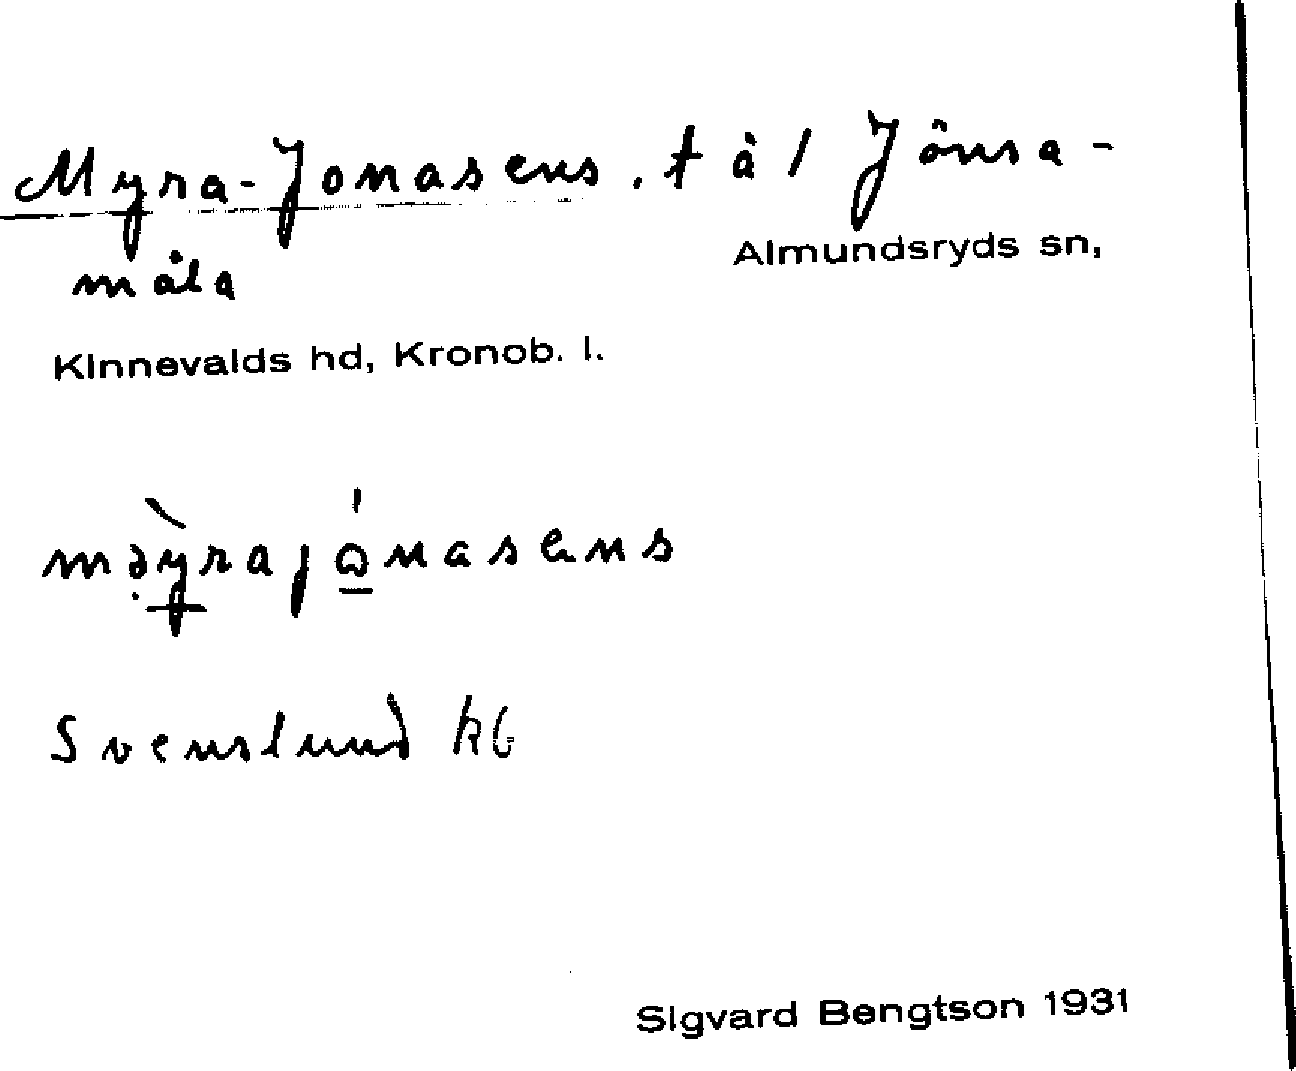 Myra-Jonasens. t å / Jönsa-
måla
Almundsryds sn,
Kinnevalds hd, Kronob. l.
məyrajonasens
Svenslund kb
Sigvard Bengtson 1931